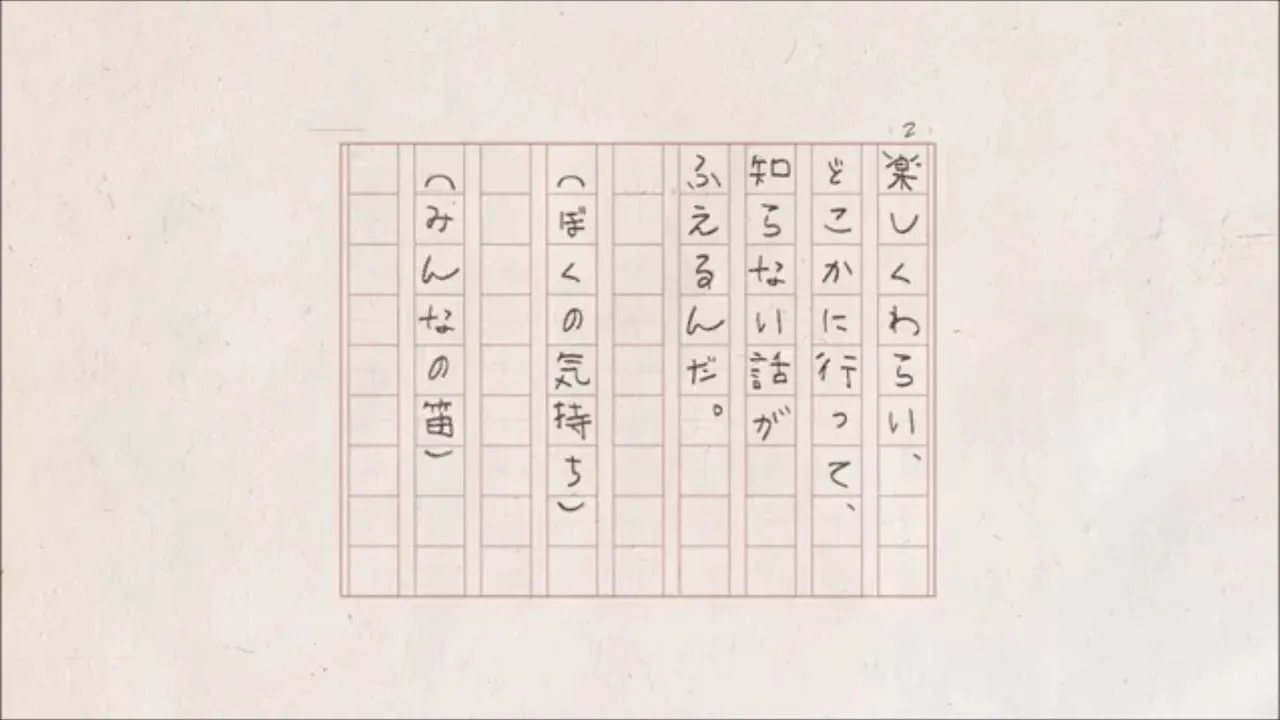 2
楽しくわらい、
どこかに行って、
知らない話が
ふえるんだ。
（ぼくの気持ち）
（みんなの笛）